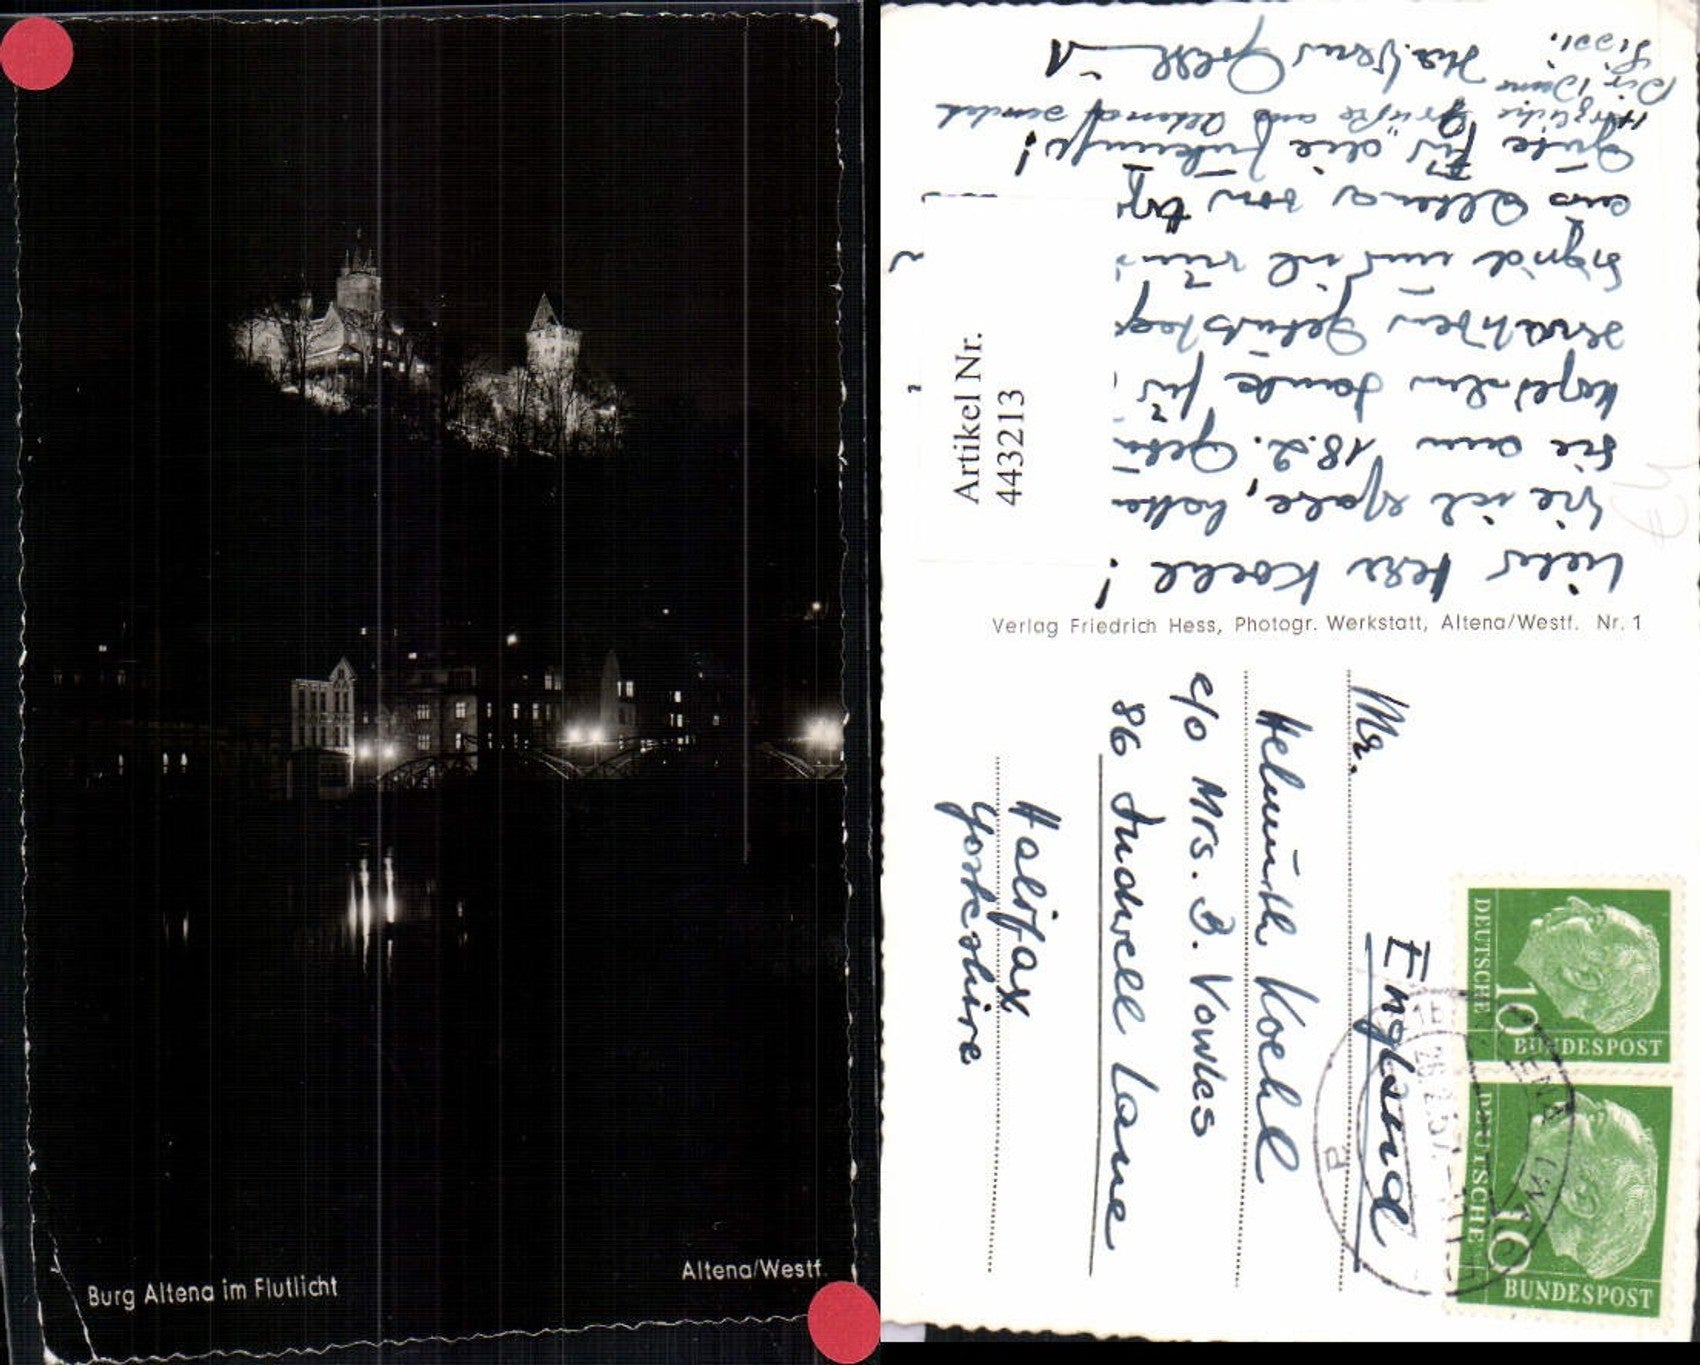 Burg Altena im Flutlicht
Altena/Westf.
Artikel Nr.
443213
Lieber Herr Koehl!
Wie ich erfahre, hatten
Sie am 18.2. Geb
Sigrid und ich
aus Altena von
Gute für die Zukunft!
Herzliche Grüße aus Altena sendet
Dir Deine
Sissi.
Verlag Friedrich Hess, Photogr. Werkstatt, Altena/Westf. Nr. 1
Mr.
Helmuth Koehl
c/o Mrs. B. Vowles
86 Ludwell Lane
Halifax
Yorkeshire
England
DEUTSCHE
10
BUNDESPOST
DEUTSCHE
10
BUNDESPOST